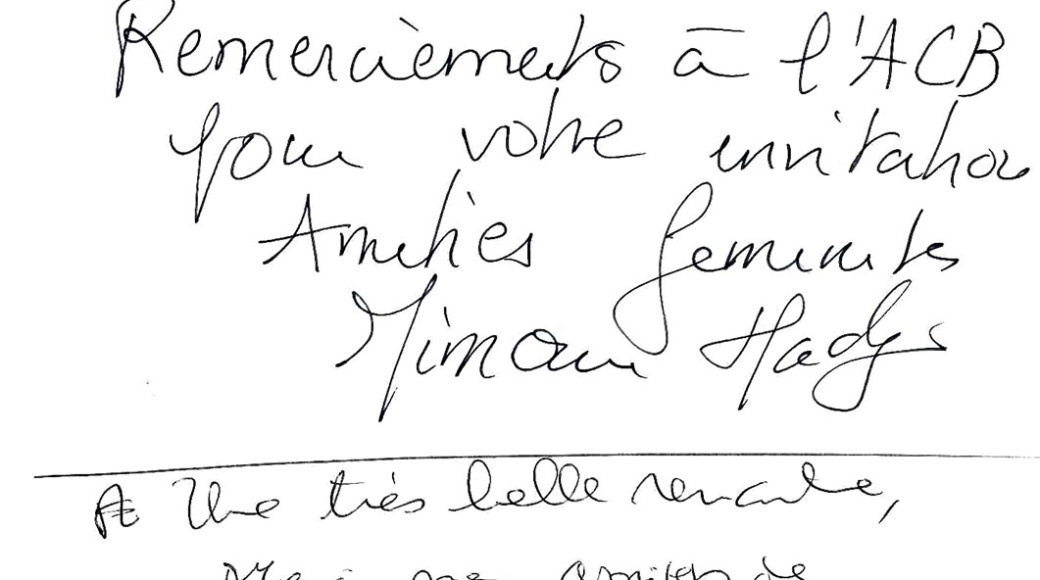 Remerciements à l'ACB
pour votre invitation
Amitiés
Mimouni Hadjs
Une très belle rencontre,